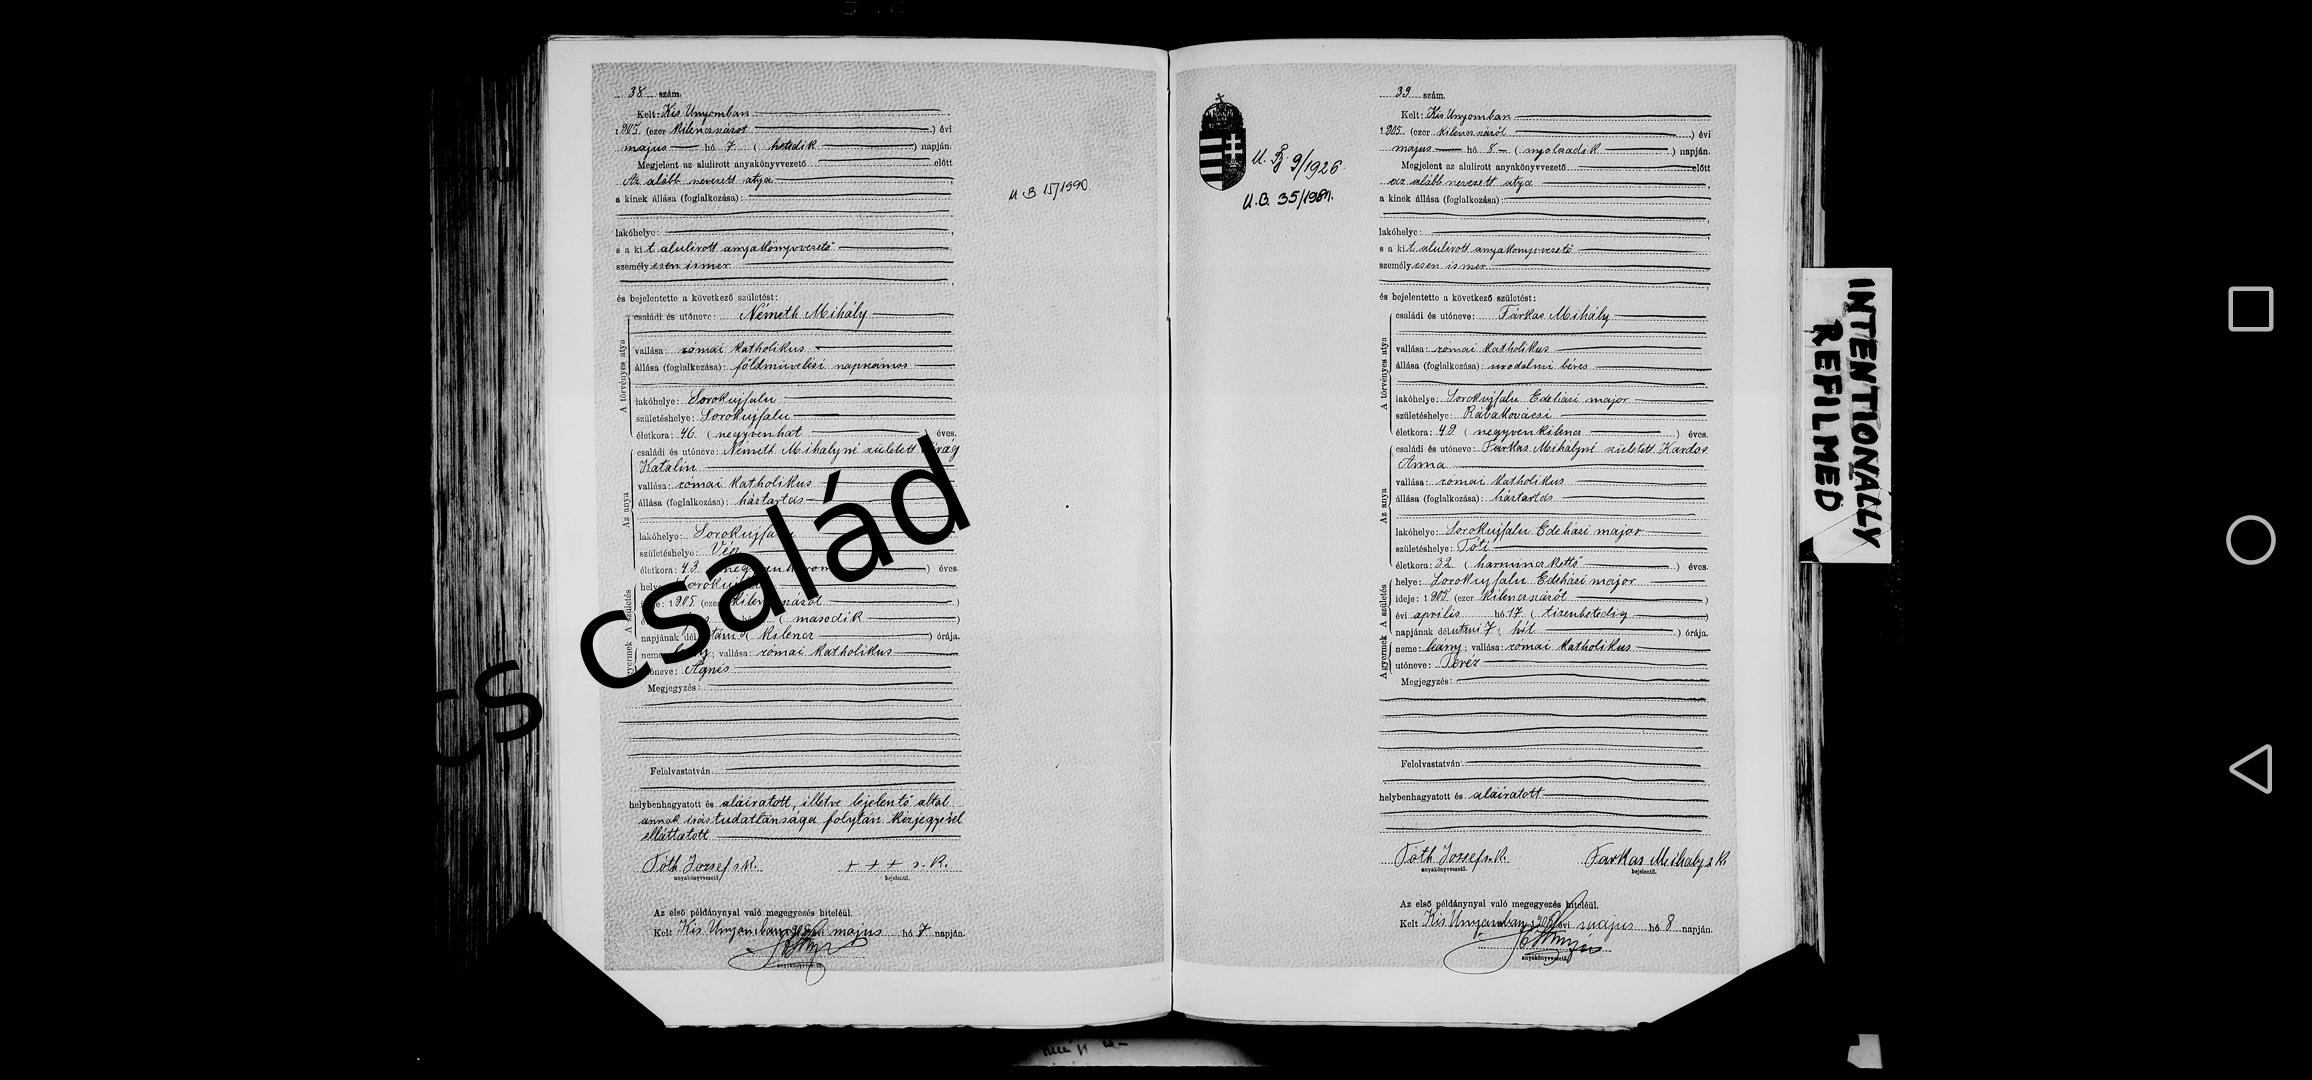 38 szám.
Kelt: Kis Unyomban
1905. (ezer kilencszázöt) évi
május hó 7 (hetedik) napján.
Megjelent az alulirott anyakönyvvezető előtt
Az alább nevezett atya
a kinek állása (foglalkozása):
lakóhelye:
s a kit alulirott anyakönyvvezető
személyesen ismer
és bejelentette a következő születést:
A törvényes atya
családi és utóneve: Németh Mihály
vallása: római katholikus
állása (foglalkozása): földmüvelési napszámos
lakóhelye: Sorokujfalu
születéshelye: Sorokujfalu
életkora: 46 (negyvenhat) éves.
Az anya
családi és utóneve: Németh Mihályné született Virág
Katalin
vallása: római katholikus
állása (foglalkozása): háztartás
lakóhelye: Sorokujfalu
születéshelye: Vép
életkora: 43 (negyvenhárom) éves.
A születés
helye: Sorokujfalu
ideje: 1905 (ezer kilencszázöt)
(második
napjának délutáni (kilenc) órája.
A gyermek
neme: leány; vallása: római katholikus
utóneve: Ágnes
Megjegyzés:
Felolvastatván
helybenhagyatott és aláiratott, illetve bejelentő által
annak irástudatlansága folytán kézjegyével
elláttatott
Tóth József s.k. + + + s.k.
anyakönyvvezető. bejelentő.
Az első példánynyal való megegyezés hiteléül.
Kelt Kis Unyomban 905 évi május hó 7 napján.
anyakönyvvezető.
U B 15/1990.
cs család
U. Bj. 9/1926
U.B. 35/1981.
39 szám.
Kelt: Kis Unyomban
1905. (ezer kilencszázöt) évi
május hó 8 (nyolcadik) napján.
Megjelent az alulirott anyakönyvvezető előtt
az alább nevezett atya
a kinek állása (foglalkozása):
lakóhelye:
s a kit alulirott anyakönyvvezető
személyesen ismer
és bejelentette a következő születést:
A törvényes atya
családi és utóneve: Farkas Mihály
vallása: római katholikus
állása (foglalkozása): uradalmi béres
lakóhelye: Sorokujfalu Edeházi major
születéshelye: Rábakovácsi
életkora: 49 (negyvenkilenc) éves.
Az anya
családi és utóneve: Farkas Mihályné született Kardos
Anna
vallása: római katholikus
állása (foglalkozása): háztartás
lakóhelye: Sorokujfalu Edeházi major
születéshelye: Tóti
életkora: 32 (harminckettő) éves.
A születés
helye: Sorokujfalu Edeházi major
ideje: 1905 (ezer kilencszázöt)
évi április hó 17 (tizenhetedig
napjának délutáni 7 (hét) órája.
A gyermek
neme: leány; vallása: római katholikus
utóneve: Teréz
Megjegyzés:
Felolvastatván
helybenhagyatott és aláiratott
Tóth József s.k. Farkas Mihály s k.
anyakönyvvezető. bejelentő.
Az első példánynyal való megegyezés hiteléül.
Kelt Kis Unyomban 905 évi május hó 8 napján.
anyakönyvvezető.
INTENTIONALLY
REFILMED